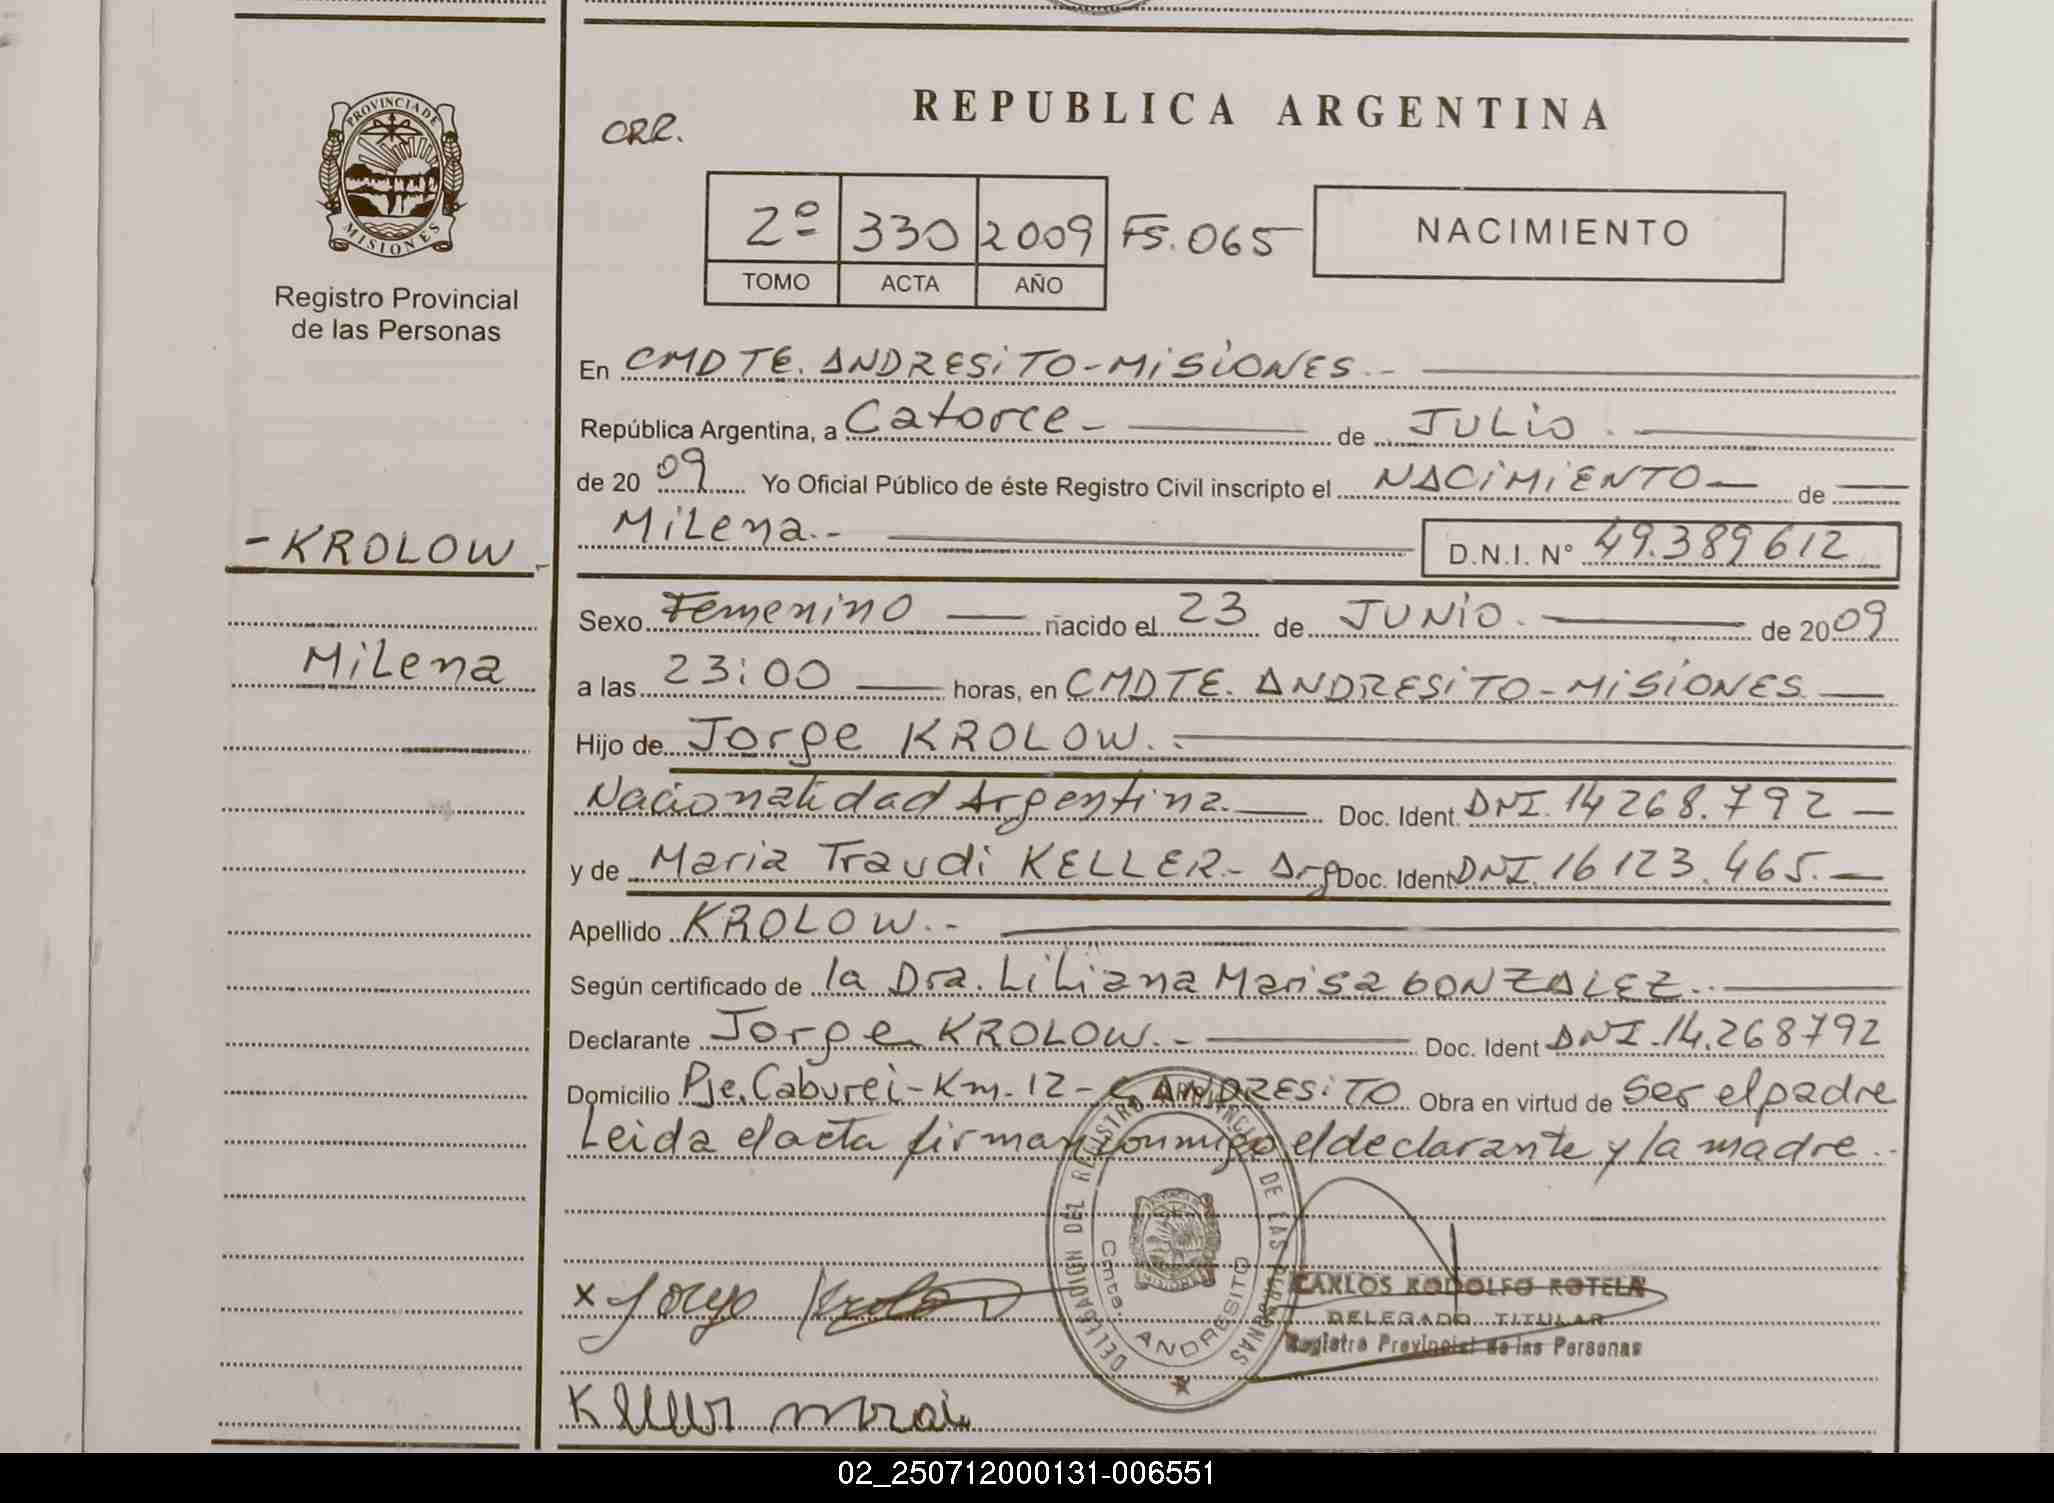 PROVINCIA DE
MISIONES
Registro Provincial
de las Personas
- KROLOW
Milena
REPUBLICA ARGENTINA
CRR.
2º 330 2009 FS. 065
TOMO ACTA AÑO
NACIMIENTO
En CMDTE. ANDRESiTO - MiSiONES. -
República Argentina, a Catorce - de JULio
de 20 09 Yo Oficial Público de éste Registro Civil inscripto el NACiMiENTO - de
MiLena. - D.N.I. N° 49.389612
Sexo Femenino nacido el 23 de JUNio. de 2009
a las 23:00 horas, en CMDTE. ANDRESiTO - MiSiONES.
Hijo de Jorge KROLOW. -
Nacionalidad Argentina. Doc. Ident. DNI. 14 268.792 -
y de Maria Traudi KELLER - Arg Doc. Ident DNI. 16 123.465. -
Apellido KROLOW. -
Según certificado de la Dra. LiLiana Marisa GONZALEZ. -
Declarante Jorge KROLOW. - Doc. Ident DNI. 14.268792
Domicilio Pje. Caburei - Km. 12 - C. ANDRESiTO Obra en virtud de ser el padre
Leida el acta firman conmigo el declarante y la madre. -
DELEGACION DEL REGISTRO PROVINCIAL DE LAS PERSONAS
Cmte. ANDRESITO
x Jorge Krolow
CARLOS RODOLFO ROTELA
DELEGADO TITULAR
Registro Provincial de las Personas
Keller
02_250712000131-006551